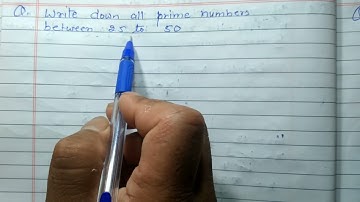 Q. Write down all prime numbers
between 25 to 50